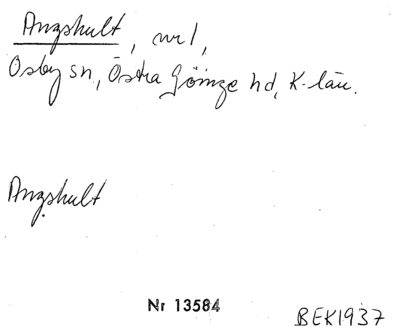 Angshult, nr 1,
Osby sn, Östra Göinge hd, K-län.
Angshult
Nr 13584
BEK1937